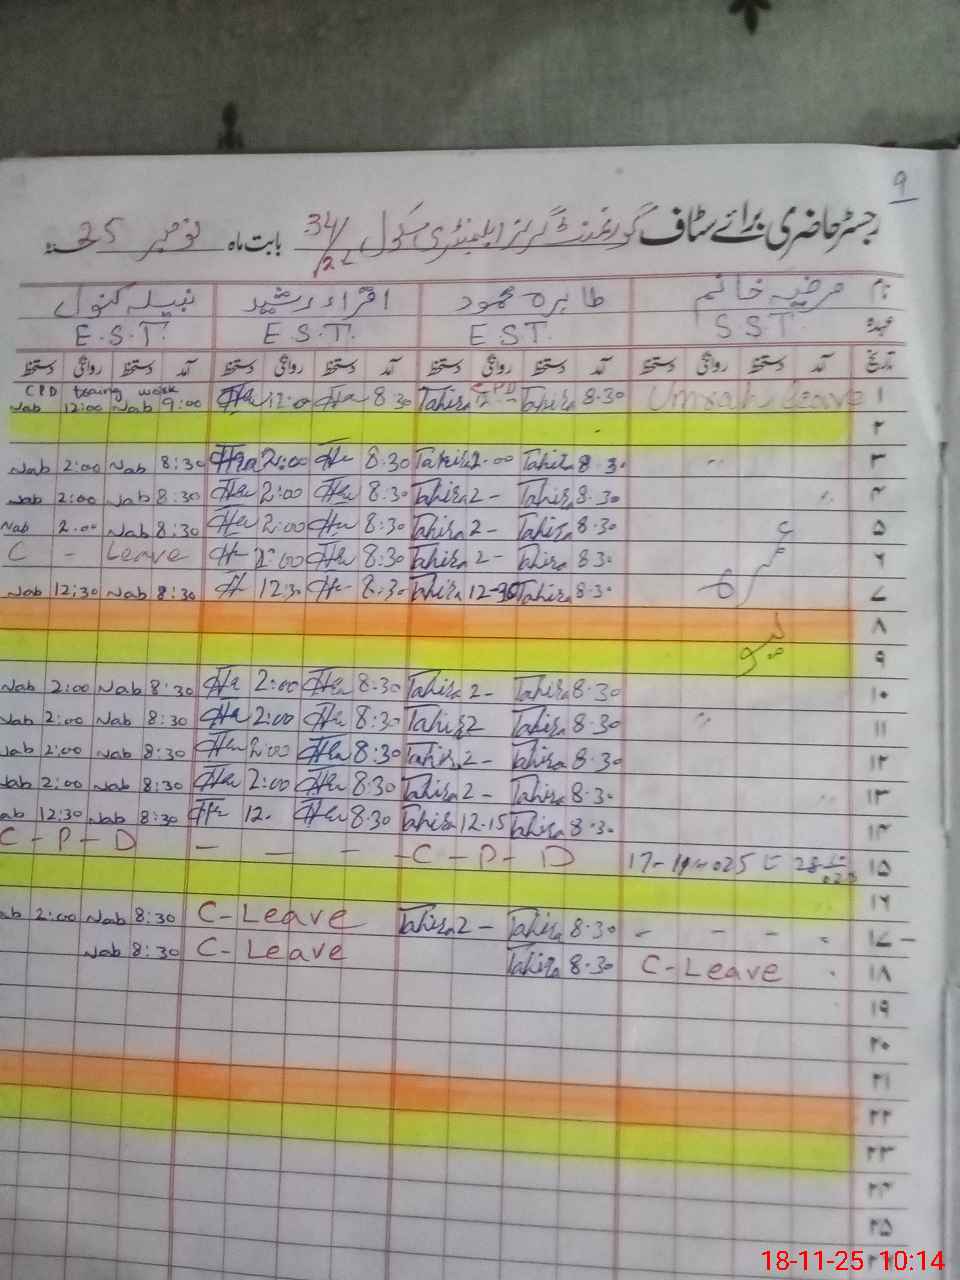 9
رجسٹر حاضری برائے سٹاف گورنمنٹ گرلز ایلیمنٹری سکول 34/12L بابت ماہ نومبر 25 سنہ
نام مرضیہ خانم طاہرہ محمود اقراء رشید نبیلہ کنول
عہدہ S.S.T. E.S.T. E.S.T. E.S.T.
تاریخ آمد دستخط روانگی دستخط آمد دستخط روانگی دستخط آمد دستخط روانگی دستخط آمد دستخط روانگی دستخط
۱ Umrah Leave 8.30 Tahira CPD 12- Tahira 8.30 12:00 CPD traing work 9:00 Nab 12:00 Nab
۲
۳ 8.30 Tahira 2.00 Tahira 8.30 2:00 8:30 Nab 2:00 Nab
۴ 8.30 Tahira 2- Tahira 8.30 2:00 8:30 Nab 2:00 Nab
۵ عمرہ 8.30 Tahira 2- Tahira 8.30 2:00 8:30 Nab 2.00 Nab
۶ 8.30 Tahira 2- Tahira 8.30 2:00 C - Leave
۷ 8.30 Tahira 12-30 Tahira 8.30 12.30 8:30 Nab 12:30 Nab
۸
۹
۱۰ 8.30 Tahira 2- Tahira 8.30 2:00 8:30 Nab 2:00 Nab
۱۱ 8.30 Tahira 2 Tahira 8.30 2:00 8:30 Nab 2:00 Nab
۱۲ 8.30 Tahira 2- Tahira 8.30 2:00 8:30 Nab 2:00 Nab
۱۳ 8.30 Tahira 2- Tahira 8.30 2:00 8:30 Nab 2:00 Nab
۱۴ 8.30 Tahira 12.15 Tahira 8.30 12. 8:30 Nab 12:30 Nab
۱۵ C - P - D - - - - C - P - D
۱۶
۱۷ 8.30 Tahira 2- Tahira C-Leave 8:30 Nab 2:00 Nab
۱۸ C-Leave 8.30 Tahira C-Leave 8:30 Nab
۱۹
۲۰
۲۱
۲۲
۲۳
۲۴
۲۵
18-11-25 10:14